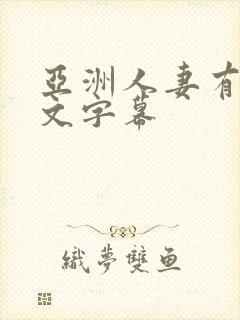 亞洲人妻有
文字幕
織夢雙鱼